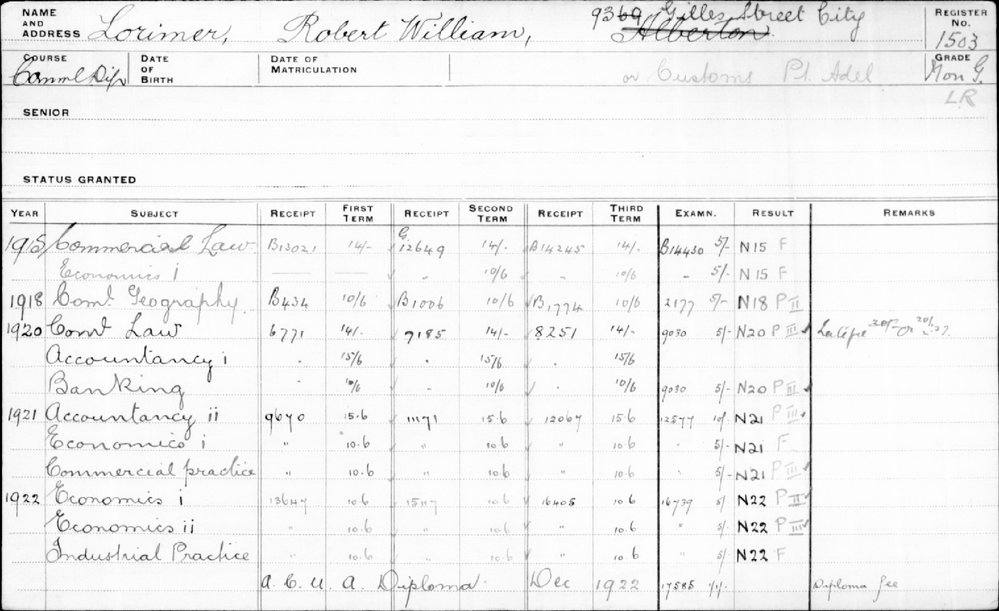 NAME AND ADDRESS Lorimer, Robert William, Gilles Street City Alberton REGISTER No. 1503
COURSE Comml Dip DATE OF BIRTH DATE OF MATRICULATION or Customs Pt. Adel GRADE Non G.
LR
SENIOR
STATUS GRANTED
YEAR SUBJECT RECEIPT FIRST TERM RECEIPT SECOND TERM RECEIPT THIRD TERM EXAMN. RESULT REMARKS
1915 Commercial Law B13021 14/- G 12649 14/- B14245 14/- B14430 5/- N15 F
Economics i — — " 10/6 10/6 " 5/- N15 F
1918 Coml Geography B434 10/6 B1006 10/6 B1774 10/6 2177 5/- N18 P II
1920 Coml Law 6771 14/- 7185 14/- 8251 14/- 9030 5/- N20 P III Late fee
Accountancy i " 15/6 " 15/6 " 15/6
Banking 10/6 " 10/6 " 10/6 9030 5/- N20 P III
1921 Accountancy ii 9670 15.6 11171 15.6 12067 15.6 12577 10/- N21 P III
Economics i " 10.6 " 10.6 " 10.6 " 5/- N21 F
Commercial practice " 10.6 " 10.6 " 10.6 " 5/- N21 P III
1922 Economics i 13647 10.6 15117 10.6 16405 10.6 16739 5/ N22 P II
Economics ii " 10.6 " 10.6 " 10.6 " 5/ N22 P III
Industrial Practice " 10.6 " 10.6 " 10.6 " 5/ N22 F
A.C.U.A. Diploma Dec 1922 17585 Diploma fee